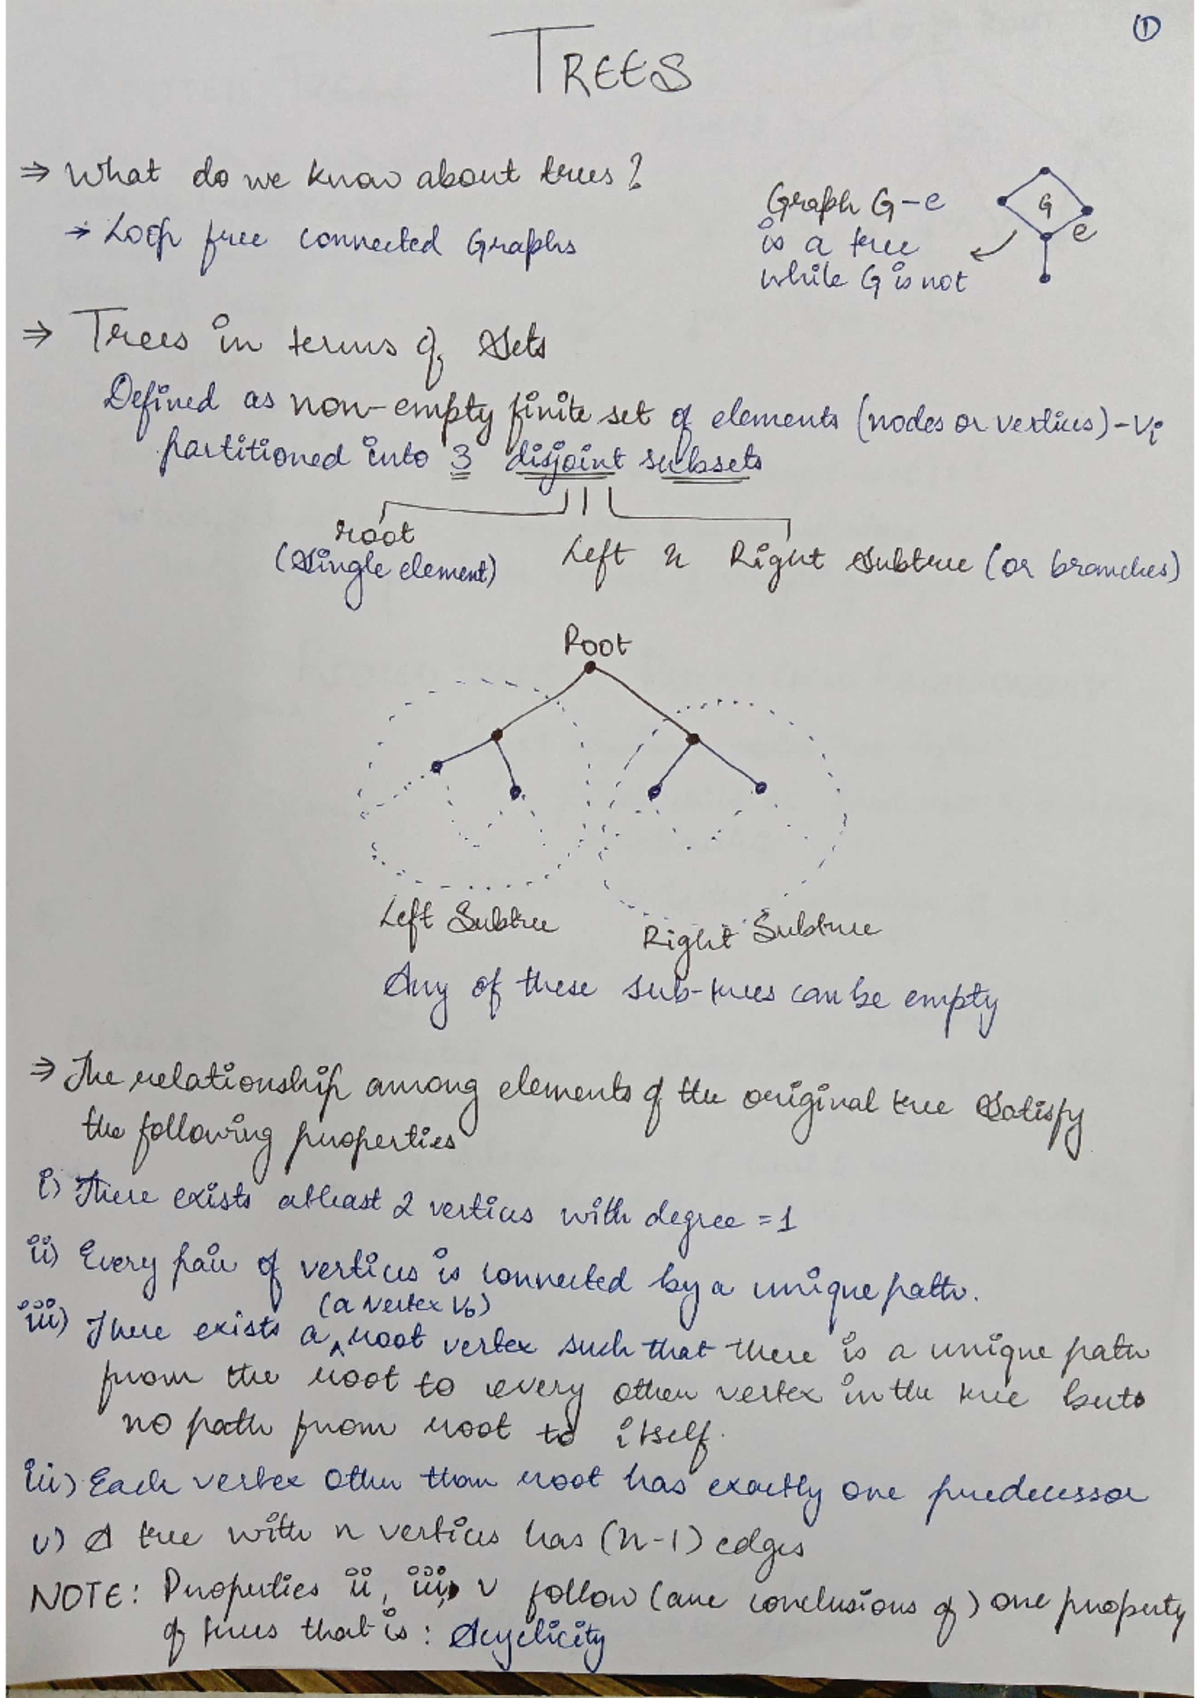 1
TREES
⇒ What do we know about trees?
→ Loop free connected Graphs
Graph G-e
is a tree
while G is not
G
e
⇒ Trees in terms of Sets
Defined as non-empty finite set of elements (nodes or vertices) - Vi
partitioned into 3 disjoint subsets
root
(Single element)
Left & Right Subtree (or branches)
Root
Left Subtree
Right Subtree
Any of these sub-trees can be empty
⇒ The relationship among elements of the original tree satisfy
the following properties
i) There exists atleast 2 vertices with degree = 1
ii) Every pair of vertices is connected by a unique path.
(a vertex V0)
iii) There exists a ^ root vertex such that there is a unique path
from the root to every other vertex in the tree but
no path from root to itself.
iii) Each vertex other than root has exactly one predecessor
v) A tree with n vertices has (n-1) edges
NOTE: Properties ii, iii, v follow (are conclusions of) one property
of trees that is: Acyclicity